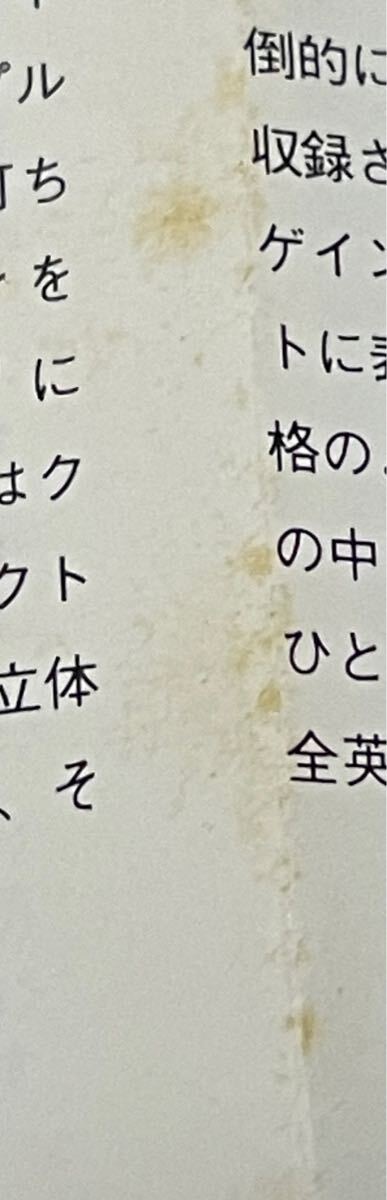 ル
ち
を
に
はク
クト
立体
、そ
倒的に
収録さ
ゲイン
トに表
格の
の中
ひと
全英